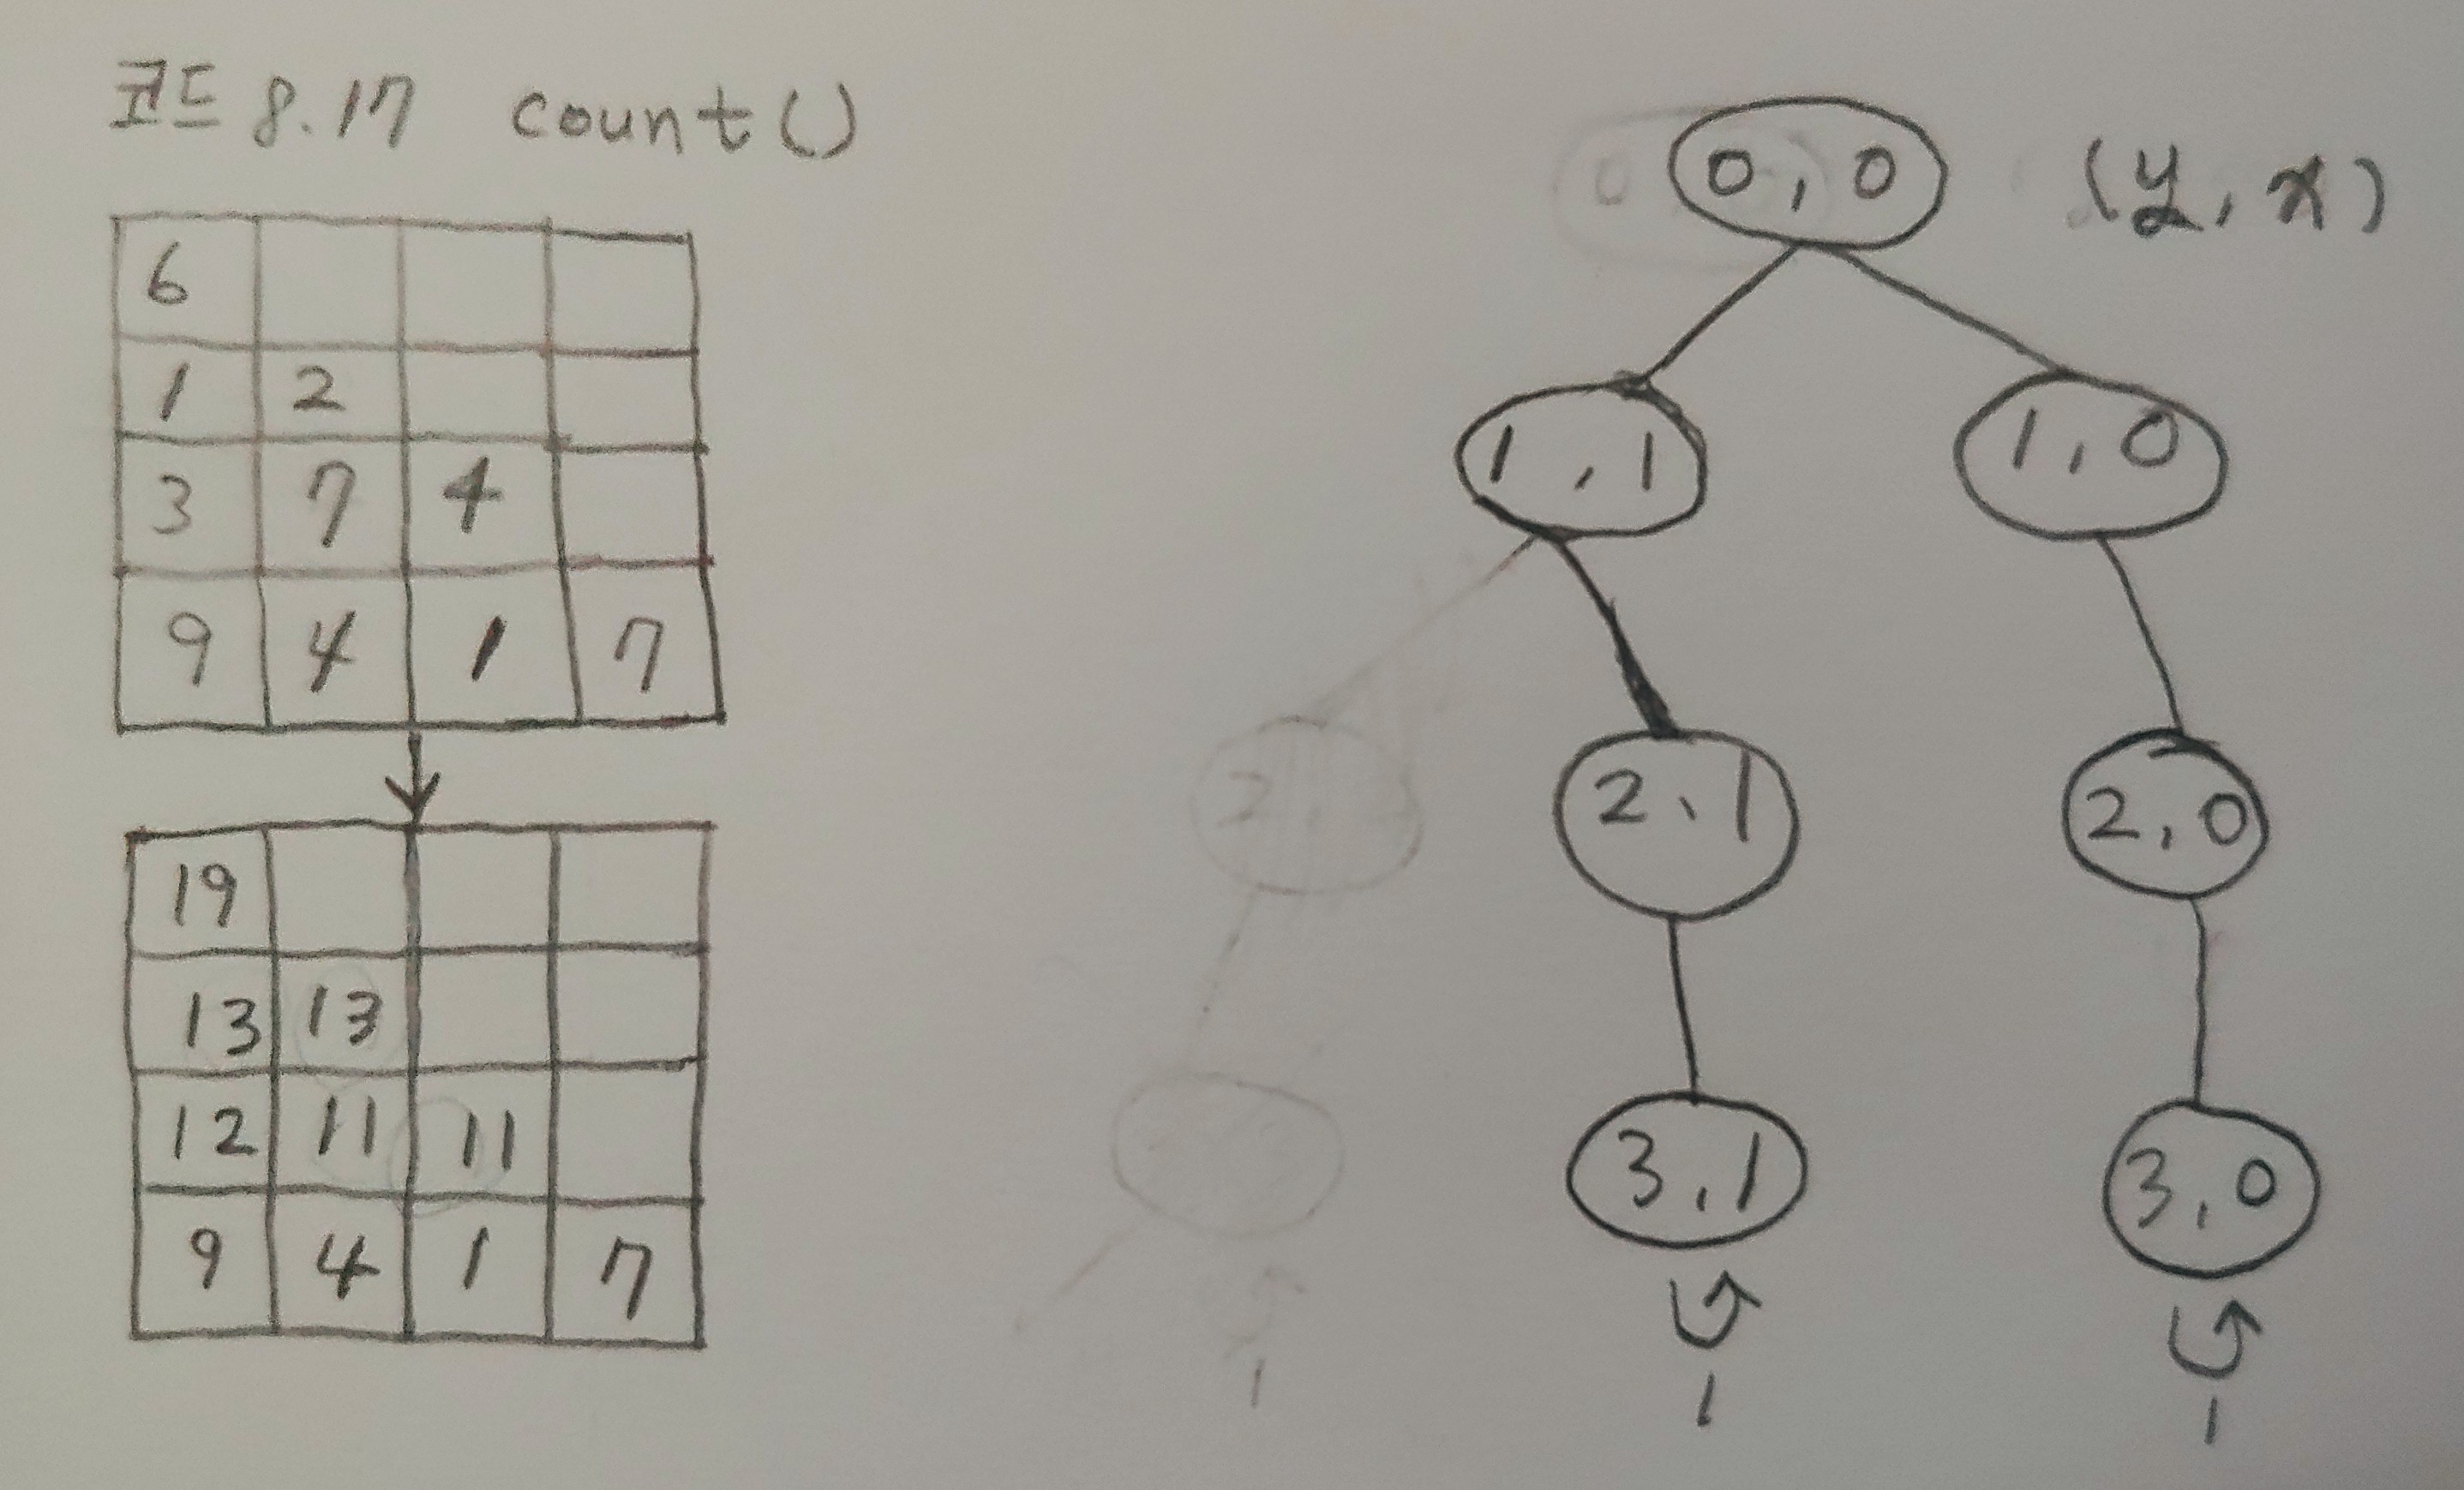 코드 8.17 count()
6
1 2
3 7 4
9 4 1 7
19
13 13
12 11 11
9 4 1 7
0, 0 (y, x)
1, 1 1, 0
2, 1 2, 0
3, 1 3, 0
1 1 1